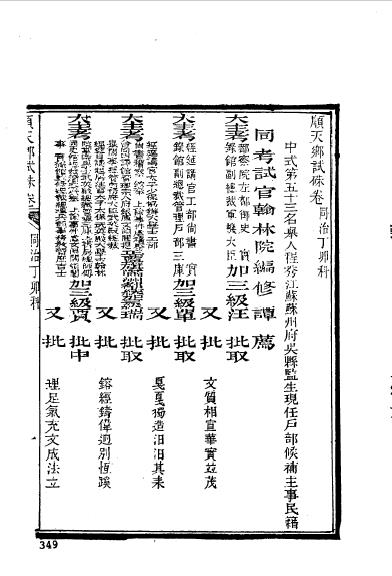 順天鄉試硃卷 同治丁卯科
中式第五十三名舉人程秀江蘇蘇州府吳縣監生現任戶部候補主事民籍
同考試官翰林院編修譚 薦
大主考 都察院左都御史 實錄館副總裁軍機大臣 加三級汪 批取
又批 文質相宣華實並茂
大主考 經筵講官工部尚書 實錄館副總裁管理戶部三庫 加三級單 批取
又批 戛戛獨造汩汩其來
大主考 加三級瑞 批取
又批 鎔經鑄偉迥別恆蹊
大主考 加三級賈 批中
又批 理足氣充文成法立
順天鄉試硃卷 同治丁卯科
一
349